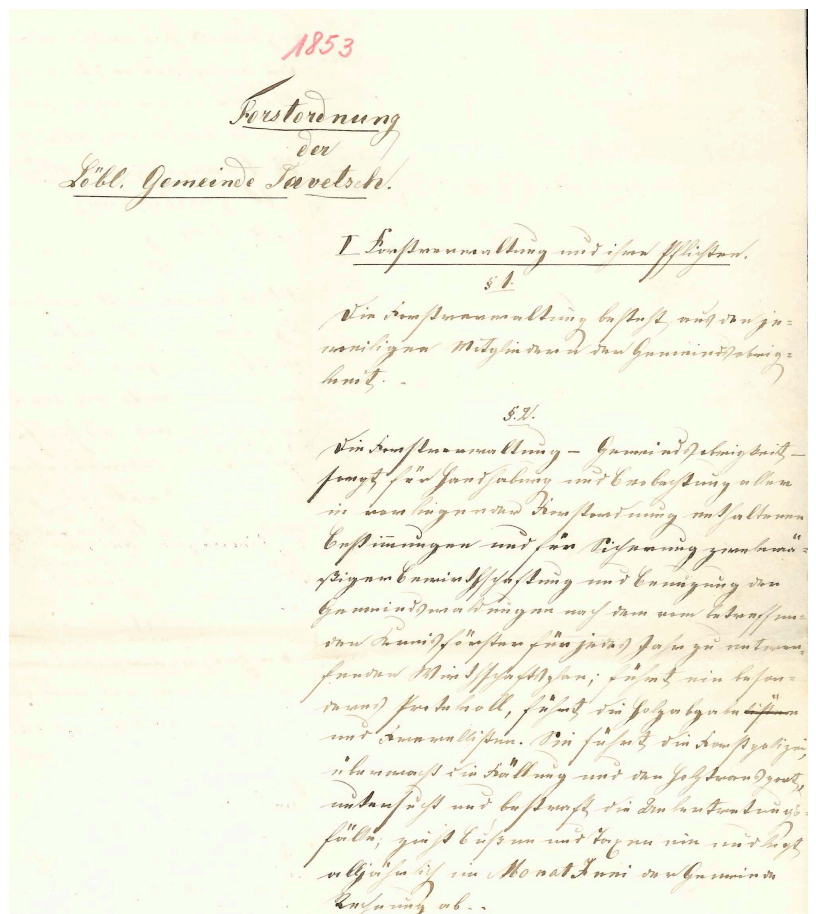 1853
Forstordnung
der
Löbl. Gemeinde Tavetsch.
I Forstverwaltung und ihre Pflichten.
§ 1.
Die Forstverwaltung besteht aus den je=
weiligen Mitgliedern der Gemeindsobrig=
keit.
§. 2.
Die Forstverwaltung – Gemeindsobrigkeit –
sorgt für Handhabung und Beobachtung aller
in vorliegender Forstordnung enthaltenen
Bestimmungen und für Sicherung zweckmä=
ßiger Bewirthschaftung und Benuzung der
Gemeindswaldungen nach dem vom betreffen=
den Kreisförster für jedes Jahr zu entwer=
fenden Wirthschaftsplan; führt ein beson=
deres Protokoll, führt die Holzabgabe
und Frevellisten. Sie führt die Forstpolizei,
überwacht die Fällung und den Holztransport,
untersucht und bestraft die Uebertretungs=
fälle; zieht Bußen und Taxen ein und legt
alljährlich im Monat Juni der Gemeinde
Rechnung ab.